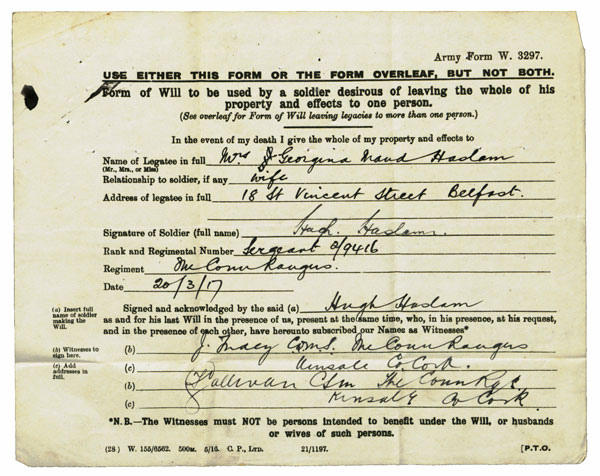 Army Form W. 3297.
USE EITHER THIS FORM OR THE FORM OVERLEAF, BUT NOT BOTH.
Form of Will to be used by a soldier desirous of leaving the whole of his
property and effects to one person.
(See overleaf for Form of Will leaving legacies to more than one person.)
In the event of my death I give the whole of my property and effects to
Name of Legatee in full Mrs Georgina Maud Haslam
(Mr., Mrs., or Miss)
Relationship to soldier, if any wife
Address of legatee in full 18 St Vincent Street Belfast.
Signature of Soldier (full name) Hugh Haslam.
Rank and Regimental Number Sergeant 3/9416
Regiment The Conn Rangers.
Date 20/3/17
(a) Insert full name of soldier making the Will.
Signed and acknowledged by the said (a) Hugh Haslam
as and for his last Will in the presence of us, present at the same time, who, in his presence, at his request,
and in the presence of each other, have hereunto subscribed our Names as Witnesses*
(b) Witnesses to sign here.
(b) J. Tracy C.Q.M.S. The Conn Rangers
(c) Add addresses in full.
(c) Kinsale Co. Cork.
(b) Sullivan CSM The Conn Rgs.
(c) Kinsale Co Cork.
*N.B.—The Witnesses must NOT be persons intended to benefit under the Will, or husbands
or wives of such persons.
(28) W. 155/6562. 500M. 5/16. C. P., LTD. 21/1197. [P.T.O.